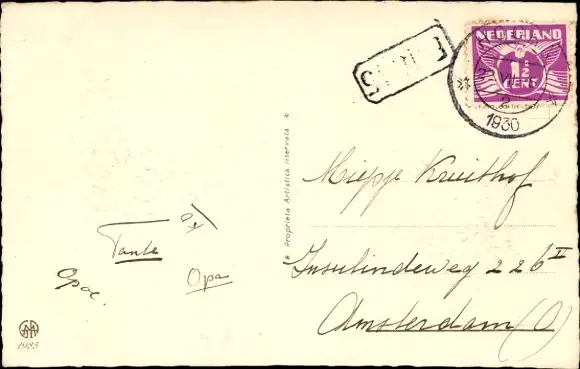 NEDERLAND
1½
CENT
VII
1930
Proprieta Artistica riservata
Miepje Kruithof
Insulindeweg 226 II
Amsterdam (O)
Tante
Opa
Opoe.
1985